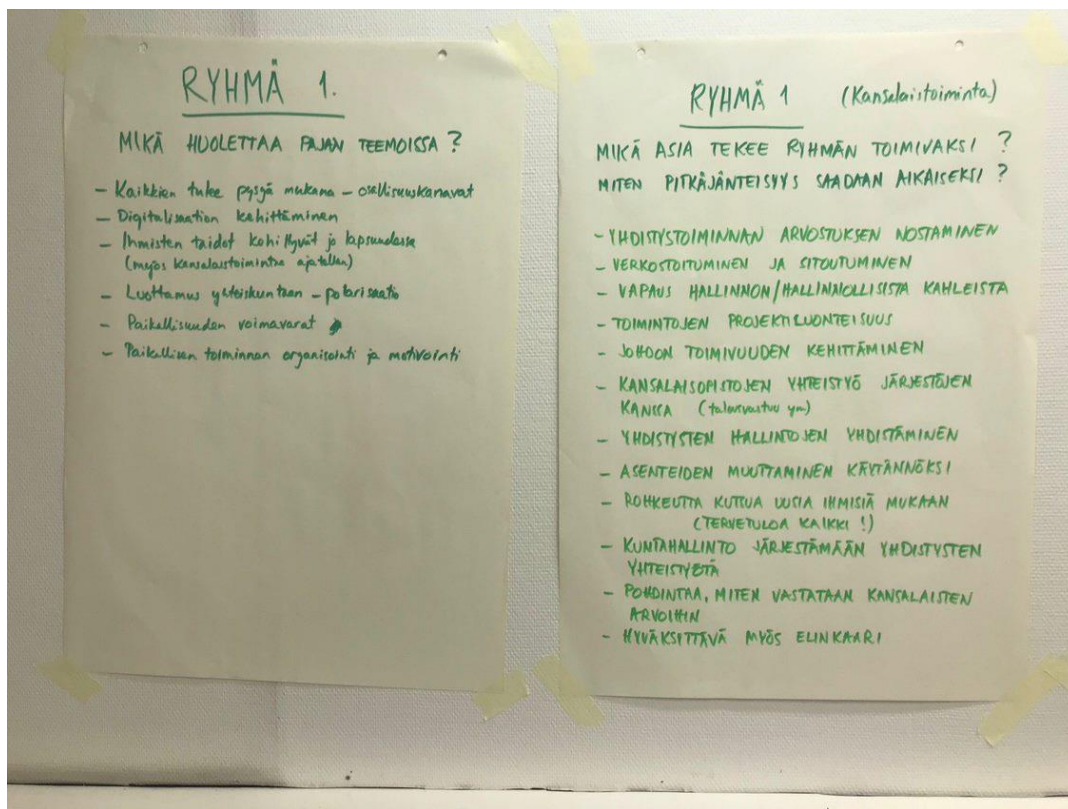 RYHMÄ 1.
MIKÄ HUOLETTAA PAJAN TEEMOISSA ?
- Kaikkien tulee pysyä mukana - osallisuuskanavat
- Digitalisaation kehittäminen
- Ihmisten taidot kehittyvät jo lapsuudessa
(myös kansalaistoimintaa ajatellen)
- Luottamus yhteiskuntaan - polarisaatio
- Paikallisuuden voimavarat
- Paikallisen toiminnan organisointi ja motivointi
RYHMÄ 1 (Kansalaistoiminta)
MIKÄ ASIA TEKEE RYHMÄN TOIMIVAKSI ?
MITEN PITKÄJÄNTEISYYS SAADAAN AIKAISEKSI ?
- YHDISTYSTOIMINNAN ARVOSTUKSEN NOSTAMINEN
- VERKOSTOITUMINEN JA SITOUTUMINEN
- VAPAUS HALLINNON/HALLINNOLLISISTA KAHLEISTA
- TOIMINTOJEN PROJEKTILUONTEISUUS
- JOHDON TOIMIVUUDEN KEHITTÄMINEN
- KANSALAISOPISTOJEN YHTEISTYÖ JÄRJESTÖJEN
KANSSA (talousvastuu ym)
- YHDISTYSTEN HALLINTOJEN YHDISTÄMINEN
- ASENTEIDEN MUUTTAMINEN KÄYTÄNNÖKSI
- ROHKEUTTA KUTSUA UUSIA IHMISIÄ MUKAAN
(TERVETULOA KAIKKI !)
- KUNTAHALLINTO JÄRJESTÄMÄÄN YHDISTYSTEN
YHTEISTYÖTÄ
- POHDINTAA, MITEN VASTATAAN KANSALAISTEN
ARVOIHIN
- HYVÄKSYTTÄVÄ MYÖS ELINKAARI